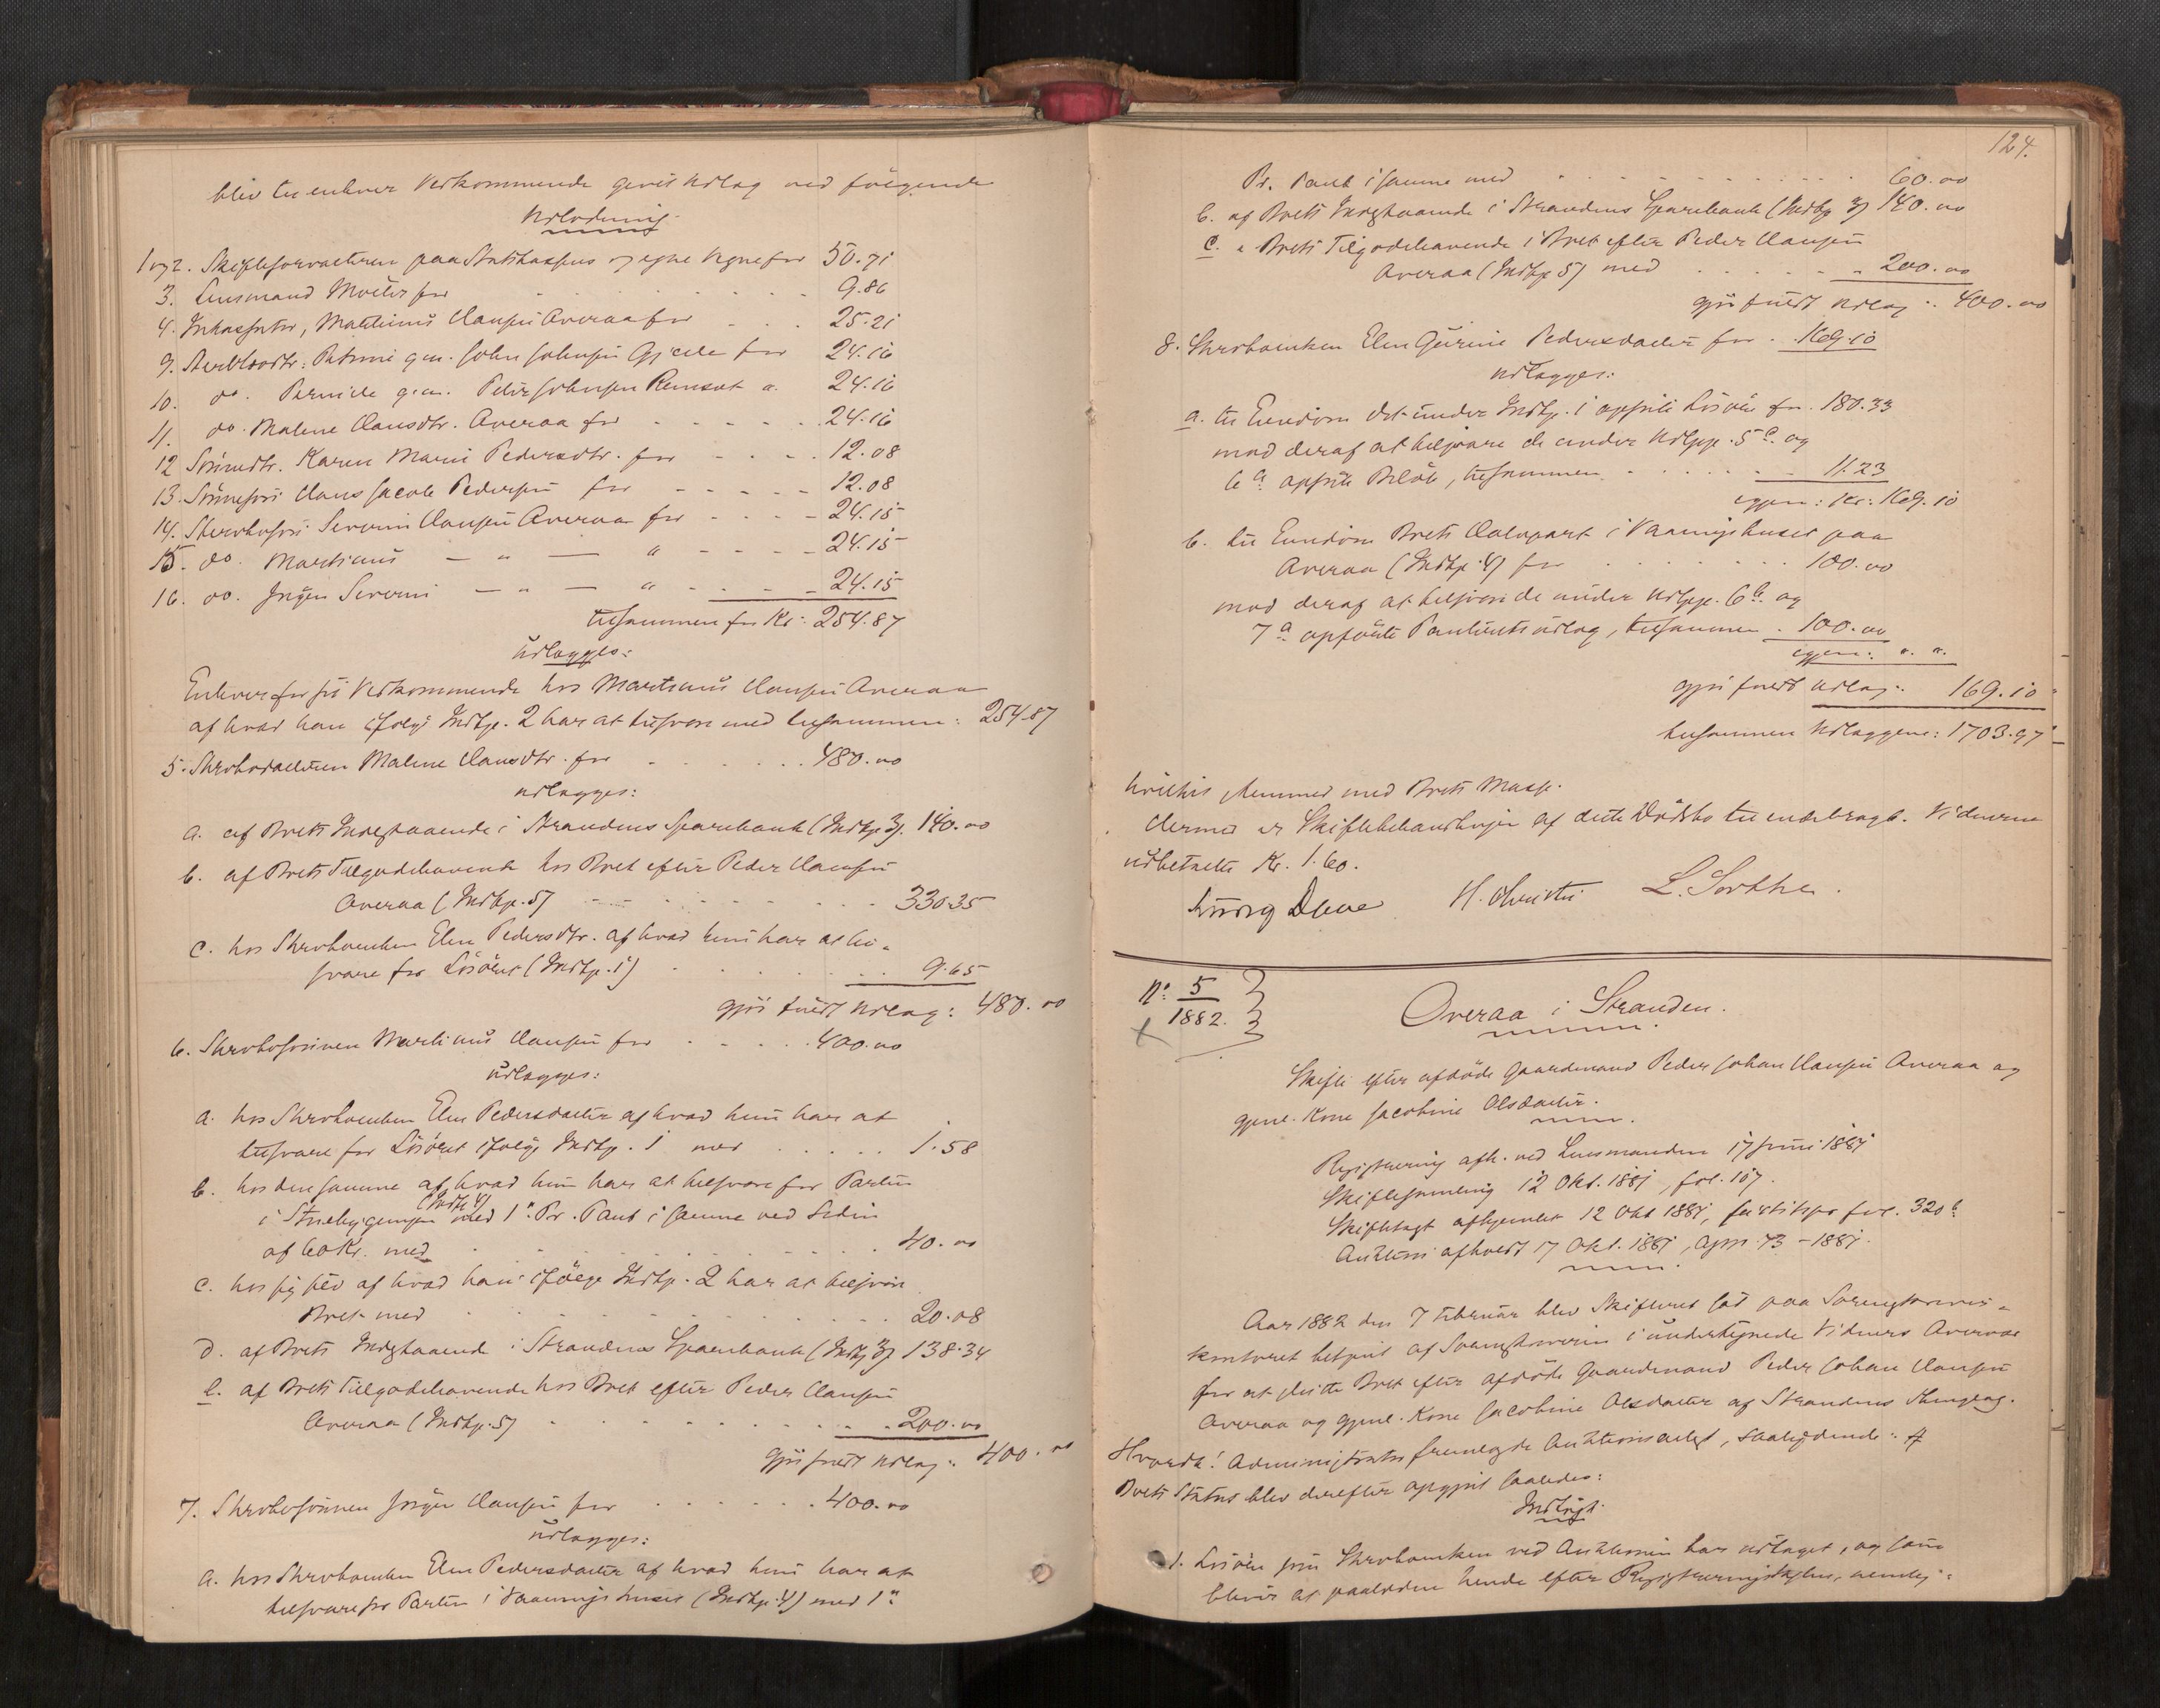 blev til enhver Vedkommende gjort Udlæg ved følgende
Udlodning.
1 og 2. Skifteforvalteren paa Statskassens og egne Vegne for 50.71
3. Lensmand for 9.86
4. Inkassator, Martinus Clausen Overaa for 25.21
9. Sterkbodtr. Petrine g.m. John Johnsen for 24.16
10. do. Pernille g.m. Peter Johnsen " 24.16
11. do. Malene Clausdtr. Overaa for 24.16
12 Sønnedtr. Karen Marie Pedersdtr. for 12.08
13. Sønnesøn Claus Jacob Pedersen for 12.08
14. Sterkbosøn Severin Clausen Overaa for 24.15
15. do. Martinus — " — " 24.15
16. do. Severin — " — " 24.15
tilsammen for Kr: 254.87
udlægges:
Enhver for sit Vedkommende hos Martinus Clausen Overaa
af hvad han ifølge Indtp. 2 har at tilsvare med tilsammen: 254.87
5. Skrobodatteren Malene Clausdtr. for 480.00
udlægges:
a. af Boets Indestaaende i Strandens Sparebank (Indtp. 3). 140.00
b. af Boets Tilgodehavende hos Boet efter Peder Clausen
Overaa (Indtp. 5) 330.35
c. hos Elen Pedersdtr. af hvad hun har at til-
svare for Løsøret (Indtp. 1) 9.65
gjør fuldt Udlæg: 480.00
6. Martinus Clausen for 400.00
udlægges:
a. hos Elen Pedersdatter af hvad hun har at
tilsvare for Løsøret ifølge Indtp. 1 med 1.58
b. hos den samme af hvad hun har at tilsvare for Parten
(Indtp. 4)
i Stuebygningen med 1ste Pr. Pant i samme ved Siden
af 60 Kr. med 40.00
c. hos sig selv af hvad han ifølge Indtp. 2 har at tilsvare
Boet med 20.08
d. af Boets Indestaaende i Strandens Sparebank (Indtp. 3) 138.34
e. af Boets Tilgodehavende hos Boet efter Peder Clausen
Overaa (Indtp. 5) 200.00
gjør fuldt Udlæg: 400.00
7. Clausen for 400.00
udlægges:
a. hos Elen Pedersdatter af hvad hun har at
tilsvare for Parten i Vaaningshuset (Indtp. 4) med 1ste
124.
Pr. Pant i samme med 60.00
b. af Boets Indestaaende i Strandens Sparebank (Indtp. 3) 140.00
c. " Boets Tilgodehavende i Boet efter Peder Clausen
Overaa (Indtp. 5) med 200.00
gjør fuldt Udlæg: 400.00
8. Elen Pedersdatter for 169.10
udlægges:
a. til Eiendom det under Indtp. 1 opførte Løsøre for 180.33
mod deraf at tilsvare de under Udlpp. 5 c. og
6 a. opførte Beløb, tilsammen 11.23
igjen: Kr: 169.10
b. til Eiendom Boets Halvpart i Vaaningshuset paa
Overaa (Indtp. 4) for 100.00
mod deraf at tilsvare de under Udlpp. 6 b. og
7 a opførte Udlæg, tilsammen 100.00
igjen: ". ".
gjør fuldt Udlæg: 169.10
tilsammen Udlæggene: 1703.97
hvilket stemmer med Boets Masse.
Hermed er Skiftebehandlingen af dette Dødsbo tilendebragt. Vidnerne
udbetalte Kr. 1.60.
H. Christie L. Sorthe.
No. 5
1882.
Overaa i Stranden.
Skifte efter afdøde Gaardmand Peder Johan Clausen Overaa og
gjenl. Kone Jacobine Olsdatter.
Registrering afh. ved Lensmanden 17 Juni 1881
Skiftesamling 12 Okt. 1881, fol. 107.
12 Okt 1881, fol. 320 b
Auktion afholdt 17 Okt. 1881, 73 - 1881.
Aar 1882 den 7 Februar blev Skifteret sat paa Sorenskriver-
kontoret betjent af Sorenskriveren i undertegnede Vidners Overvær
for at slutte Boet efter afdøde Gaardmand Peder Johan Clausen
Overaa og gjenl. Kone Jacobine Olsdatter af Strandens Thinglag.
Hvorda! Administrator fremlagde Auktionsudtog, saalydende: #
Boets Status blev derefter opgjort saaledes:
Indtægt.
1. Løsøre som ved Auktionen har udtaget, og som
bliver at hende efter Registreringstaxten, nemlig: